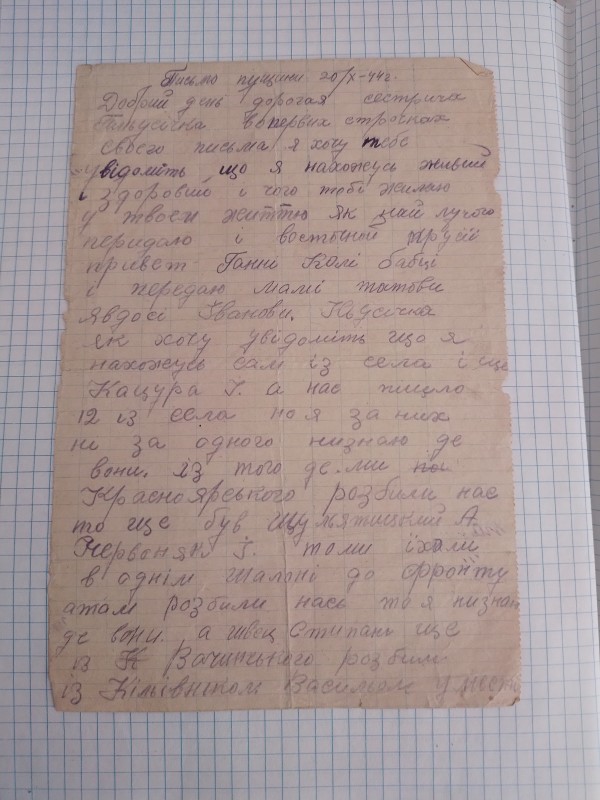 Письмо пущини 20/X-44г.
Добрий день дорогая сестричка
Ганьусічка Вопервих строчках
своего письма я хочу тебе
увідоміть що я нахожусь живий
і здоровий і чого тобі жилаю
у твоєм життю як най лучого
передаю і восточной прусії
привет Ганні Колі бабці
і передаю мамі татови
Явдосі Іванови.
як хочу увідоміть що я
нахожусь сам із села і ще
Кацура І. а нас пишло
12 із села но я за них
ні за одного низнаю де
вони. із того де.ми
Красноярського розбили нас
то ще був А.
І. то ми їхали
в однім шалоні до фронту
атам розбили нась то я низнаю
де вони а швец Стипань ще
із розбили
із Васильєм у место